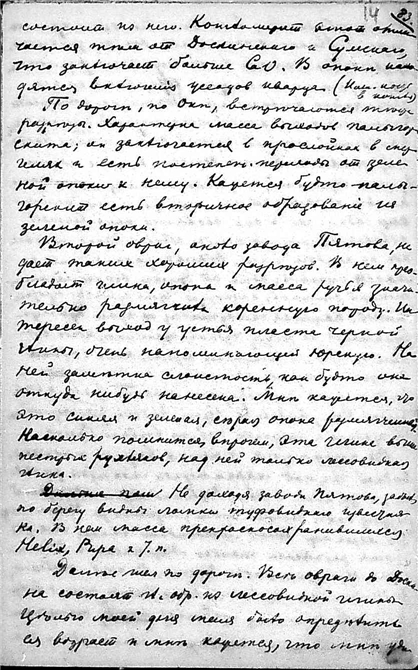 14
состоит из него. Конгломерат этот отли-
чается тем от Доскинского и Сумского,
что заключает больше CaO. В опоки нахо-
дятся включения усадов кварца.
По дороге, по Оке, встречаются
разрезы. Характерна масса выходов палыгор-
скита; он заключается в прослойках в
и есть постепен. переходы от зеле-
ной опоки к нему. Кажется будто палы-
горскит есть вторичное образование из
зеленой опоки.
Второй овраг, около завода Пятова, не
дает таких хороших разрезов. В нем прео-
бладает глина, опока и масса ручья значи-
тельно размягчила коренную породу. Ин-
тересен выход у устья пласта черной
глины, очень напоминающей юрскую. На
ней заметна слоистость, как будто она
откуда нибудь нанесена. Мне кажется, что
это синяя и зеленая, сырая опока размягченная.
Насколько помнится, впрочем, эта глина выше
пестрых рухляков, над ней только лессовидная
глина.
Не доходя завода Пятова,
по берегу видны ломки туфовидного известня-
ка. В нем масса прекрасно сохранившихся
Helix, Pupa и т. п.
Далее шел по дороге. Все овраги до Доски-
на состоят гл. обр. из лессовидной глины.
Целью моей для меня было определить
ся возраст и мне кажется, что мне